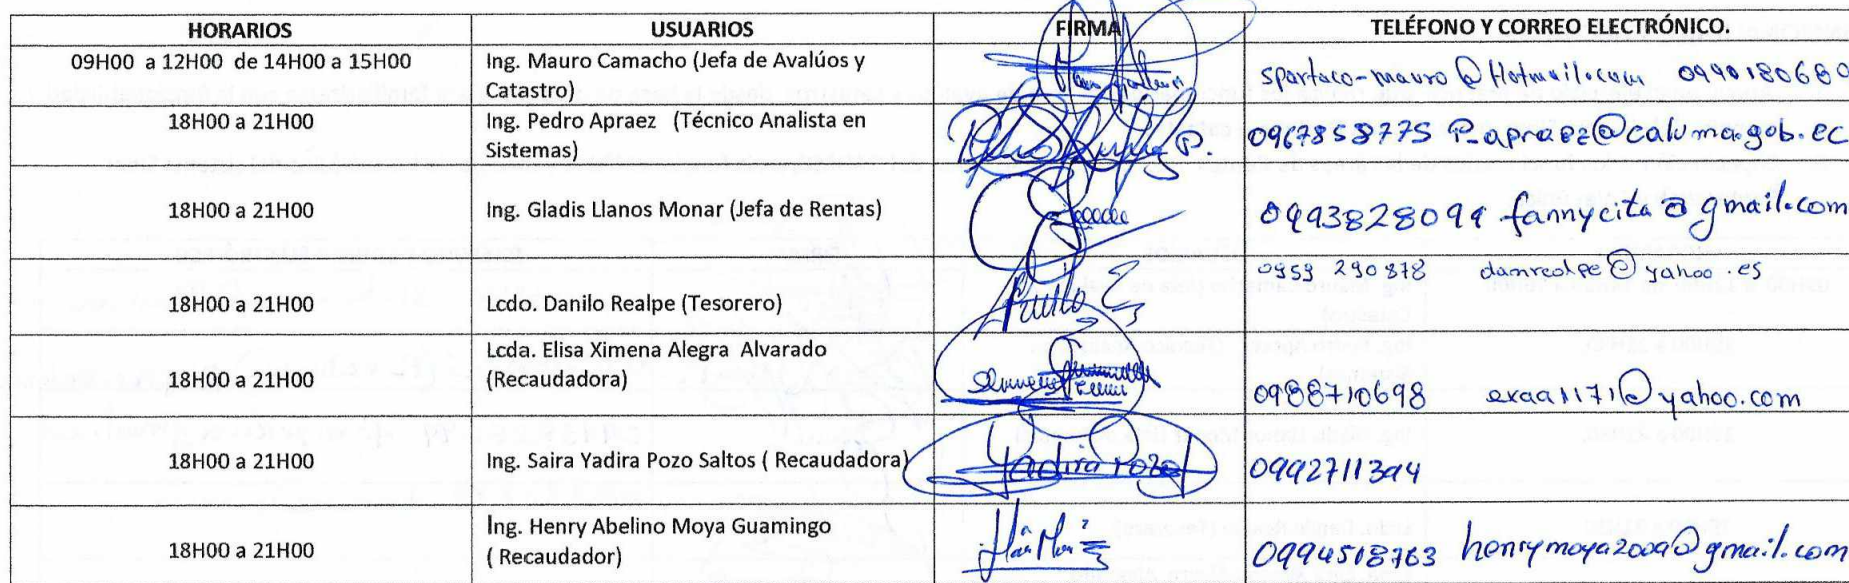 HORARIOS USUARIOS FIRMA TELÉFONO Y CORREO ELECTRÓNICO.
09H00 a 12H00 de 14H00 a 15H00 Ing. Mauro Camacho (Jefa de Avalúos y
Catastro) spartaco-mauro@Hotmail.com 0990180680
18H00 a 21H00 Ing. Pedro Apraez (Técnico Analista en
Sistemas) 0967858775 P-apraez@caluma.gob.ec
18H00 a 21H00 Ing. Gladis Llanos Monar (Jefa de Rentas) 0993828099 fannycita@gmail.com
0959 290878 damrealpe@yahoo.es
18H00 a 21H00 Lcdo. Danilo Realpe (Tesorero)
Lcda. Elisa Ximena Alegra Alvarado
18H00 a 21H00 (Recaudadora) 0988710698 exaa1171@yahoo.com
18H00 a 21H00 Ing. Saira Yadira Pozo Saltos ( Recaudadora) Yadira Pozo 0992711394
Ing. Henry Abelino Moya Guamingo
18H00 a 21H00 ( Recaudador) 0994518763 henrymoya2009@gmail.com